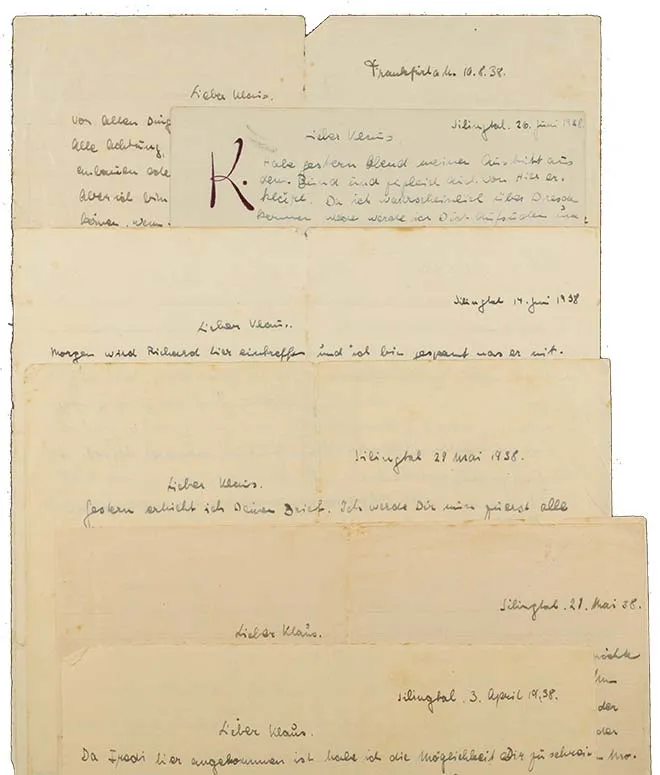 Frankfurt a. M. 10.8.38.
Lieber Klaus.
Von allen Ding
Alle Achtung,
einbauen
Aber ich bin
können, wenn
Silingtal. 26. Juni 1938
Lieber Klaus
K.
Habe gestern Abend meinen Austritt aus
dem Bund und zugleich auch von Hier er-
klärt. Da ich wahrscheinlich über Dresden
kommen werde werde ich Dich aufsuchen
Silingtal 14. Juni 1938
Lieber Klaus.
Morgen wird Richard hier eintreffen und ich bin gespannt was er mit-
Silingtal 29 Mai 1938.
Lieber Klaus.
Gestern erhielt ich Deinen Brief. Ich werde Dir nun zuerst alle
Silingtal. 21. Mai 38.
Lieber Klaus.
möchte
der
der
Silingtal. 3. April 1938.
Lieber Klaus.
Da Fredi hier angekommen ist habe ich die Möglichkeit Dir zu schrei-